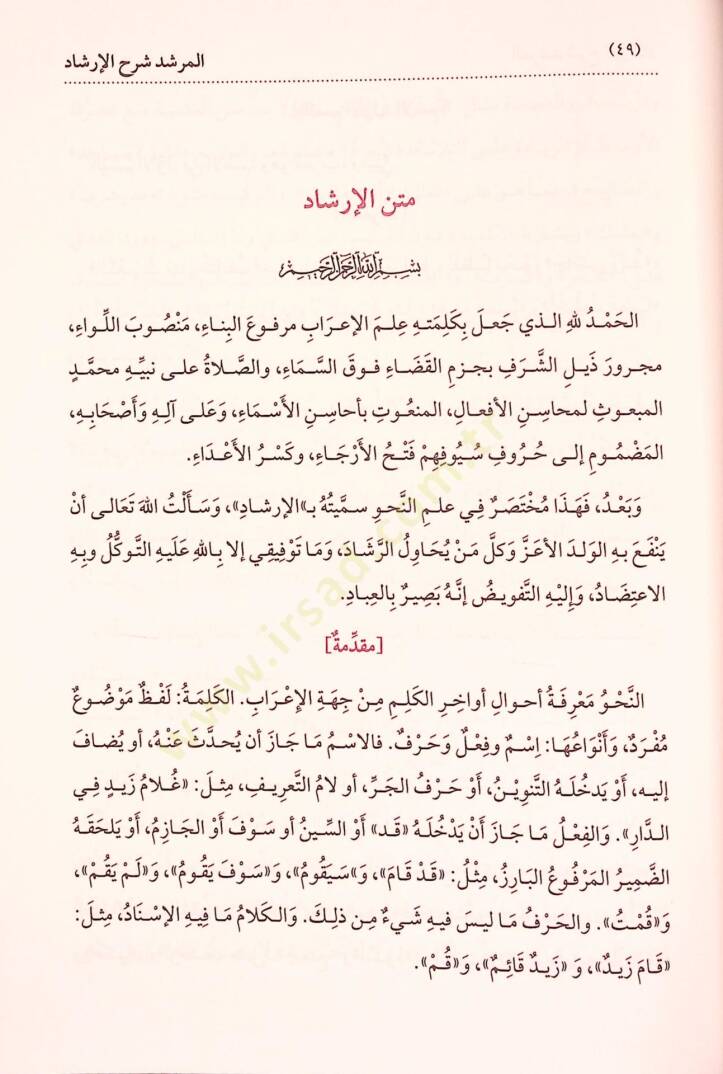 المرشد شرح الإرشاد
(٤٩)
متن الإرشاد
بِسْمِ اللهِ الرَّحْمٰنِ الرَّحِيْمِ
الحَمْدُ للهِ الـذي جَعلَ بِكَلِمَتـهِ عِلـمَ الإعـرَابِ مرفـوعَ البِناءِ، مَنْصُوبَ اللِّواءِ،
مجـرورَ ذَيـلِ الشَّـرَفِ بجـزمِ القَضَـاءِ فـوقَ السَّـمَاءِ، والصَّـلاةُ علـى نبيِّـهِ محمَّـدٍ
المبعـوثِ لمحاسِـنِ الأفعـالِ، المنعُـوتِ بأحاسِـنِ الأَسْـمَاءِ، وَعَلـى آلِـهِ وَأَصْحَابِـهِ،
المَضْمُومِ إلـى حُرُوفِ سُيُوفِهِمْ فَتْحُ الأَرْجَاءِ، وكَسْرُ الأَعْدَاءِ.
وَبَعْدُ، فَهَذَا مُخْتَصَرٌ فِي علـمِ النَّحوِ سميَّتُهُ بـ«الإرشادِ»، وَسَأَلْتُ اللهَ تَعَالـى أنْ
يَنْفَعَ بهِ الوَلـدَ الأعزَّ وَكلَّ مَنْ يُحَاوِلُ الرَّشَادَ، وَمَا تَوْفِيقِي إلا بِاللهِ عَلَيهِ التَّوكُّلُ وبهِ
الاعتِضَادُ، وَإِليْهِ التَّفويضُ إنَّهُ بَصِيرٌ بِالعِبادِ.
[مقدِّمةٌ]
النَّحْوُ مَعْرِفَةُ أحوالِ أواخِرِ الكَلِمِ مِنْ جِهَةِ الإِعْرَابِ. الكَلِمَةُ: لَفْظٌ مَوْضُوعٌ
مُفْرَدٌ، وَأَنْوَاعُهَا: إسْمٌ وفِعْلٌ وَحَرْفٌ. فالاسْمُ مَا جَازَ أن يُحدَّثَ عَنْهُ، أو يُضافَ
إليه، أَوْ يَدخُلَـهُ التَّنوِيْنُ، أَوْ حَرْفُ الجَرِّ، أو لامُ التَّعرِيفِ، مِثلَ: «غُلامُ زَيدٍ فِي
الـدَّارِ». وَالفِعْـلُ مَـا جَـازَ أَنْ يَدْخُلَـهُ «قَـد» أَوْ السِّيْنُ أو سَوْفَ أَوْ الجَازِمُ، أَوْ يَلحَقَهُ
الضَّمِيرُ المَرْفُوعُ البَارِزُ، مِثْلُ: «قَدْ قَامَ»، وَ«سَيَقُومُ»، وَ«سَوْفَ يَقُومُ»، وَ«لَمْ يَقُمْ»،
وَ«قُمْتُ». والحَرْفُ مَا ليسَ فيهِ شَيءٌ مِن ذلِكَ. وَالكَلامُ مَا فِيهِ الإسْنَادُ، مِثلَ:
«قَامَ زَيدٌ»، وَ «زَيدٌ قَائِمٌ»، وَ«قُمْ».
www.irsad.com.tr